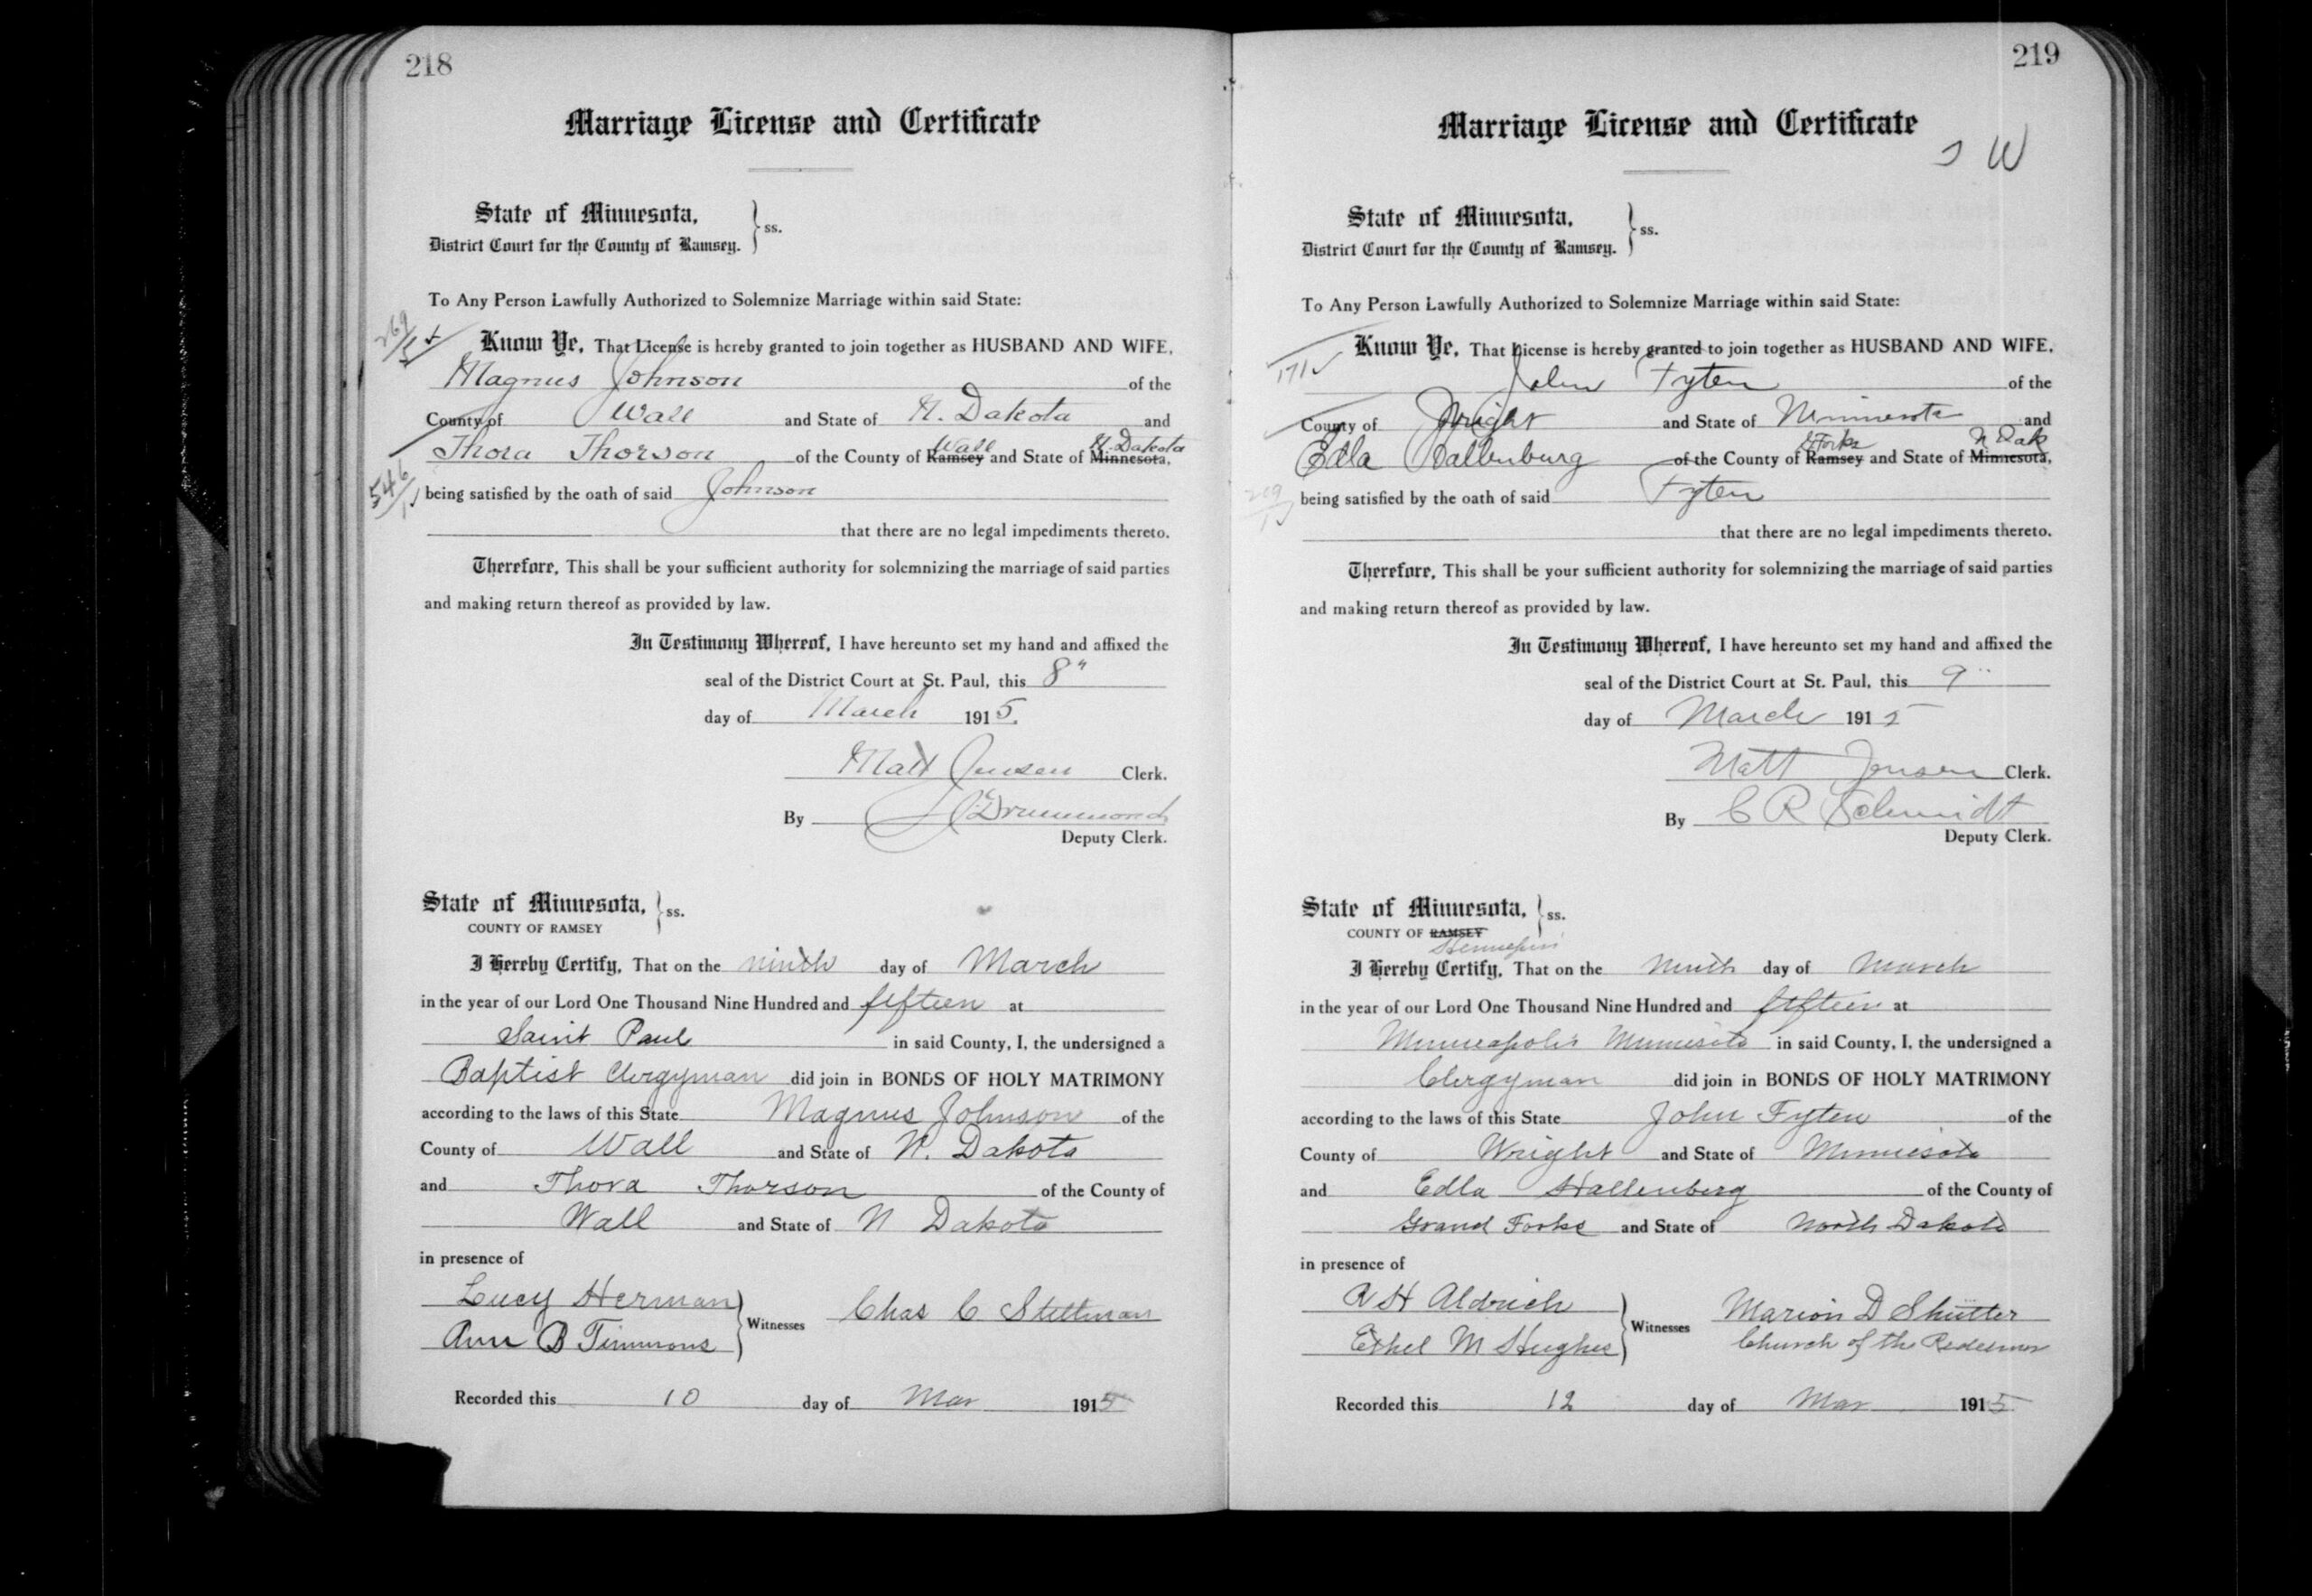 218
Marriage License and Certificate
State of Minnesota,
District Court for the County of Ramsey. } ss.
To Any Person Lawfully Authorized to Solemnize Marriage within said State:
Know Ye, That License is hereby granted to join together as HUSBAND AND WIFE,
Magnus Johnson of the
County of Wall and State of N. Dakota and
Wall N. Dakota
Thora Thorson of the County of Ramsey and State of Minnesota,
being satisfied by the oath of said Johnson
that there are no legal impediments thereto.
Therefore, This shall be your sufficient authority for solemnizing the marriage of said parties
and making return thereof as provided by law.
In Testimony Whereof, I have hereunto set my hand and affixed the
seal of the District Court at St. Paul, this 8"
day of March 1915.
Matt Jensen Clerk.
By Drummond
Deputy Clerk.
State of Minnesota, } ss.
COUNTY OF RAMSEY
I Hereby Certify, That on the ninth day of March
in the year of our Lord One Thousand Nine Hundred and fifteen at
Saint Paul in said County, I, the undersigned a
Baptist Clergyman did join in BONDS OF HOLY MATRIMONY
according to the laws of this State Magnus Johnson of the
County of Wall and State of N. Dakota
and Thora Thorson of the County of
Wall and State of N Dakota
in presence of
Lucy Herman
Ann B Timmons } Witnesses Chas C Stillman
Recorded this 10 day of Mar 1915
219
Marriage License and Certificate
W
State of Minnesota,
District Court for the County of Ramsey. } ss.
To Any Person Lawfully Authorized to Solemnize Marriage within said State:
Know Ye, That License is hereby granted to join together as HUSBAND AND WIFE,
171
John Fyten of the
County of Wright and State of Minnesota and
G Forks N Dak
Edla Hallenburg of the County of Ramsey and State of Minnesota,
being satisfied by the oath of said Fyten
that there are no legal impediments thereto.
Therefore, This shall be your sufficient authority for solemnizing the marriage of said parties
and making return thereof as provided by law.
In Testimony Whereof, I have hereunto set my hand and affixed the
seal of the District Court at St. Paul, this 9"
day of March 1915
Matt Jensen Clerk.
By C R Schmidt
Deputy Clerk.
State of Minnesota, } ss.
COUNTY OF RAMSEY
Hennepin
I Hereby Certify, That on the Ninth day of March
in the year of our Lord One Thousand Nine Hundred and fifteen at
Minneapolis Minnesota in said County, I, the undersigned a
Clergyman did join in BONDS OF HOLY MATRIMONY
according to the laws of this State John Fyten of the
County of Wright and State of Minnesota
and Edla Hallenberg of the County of
Grand Forks and State of North Dakota
in presence of
R H Aldrich
Ethel M Hughes } Witnesses Marion D Shutter
Church of the Redeemer
Recorded this 12 day of Mar 1915